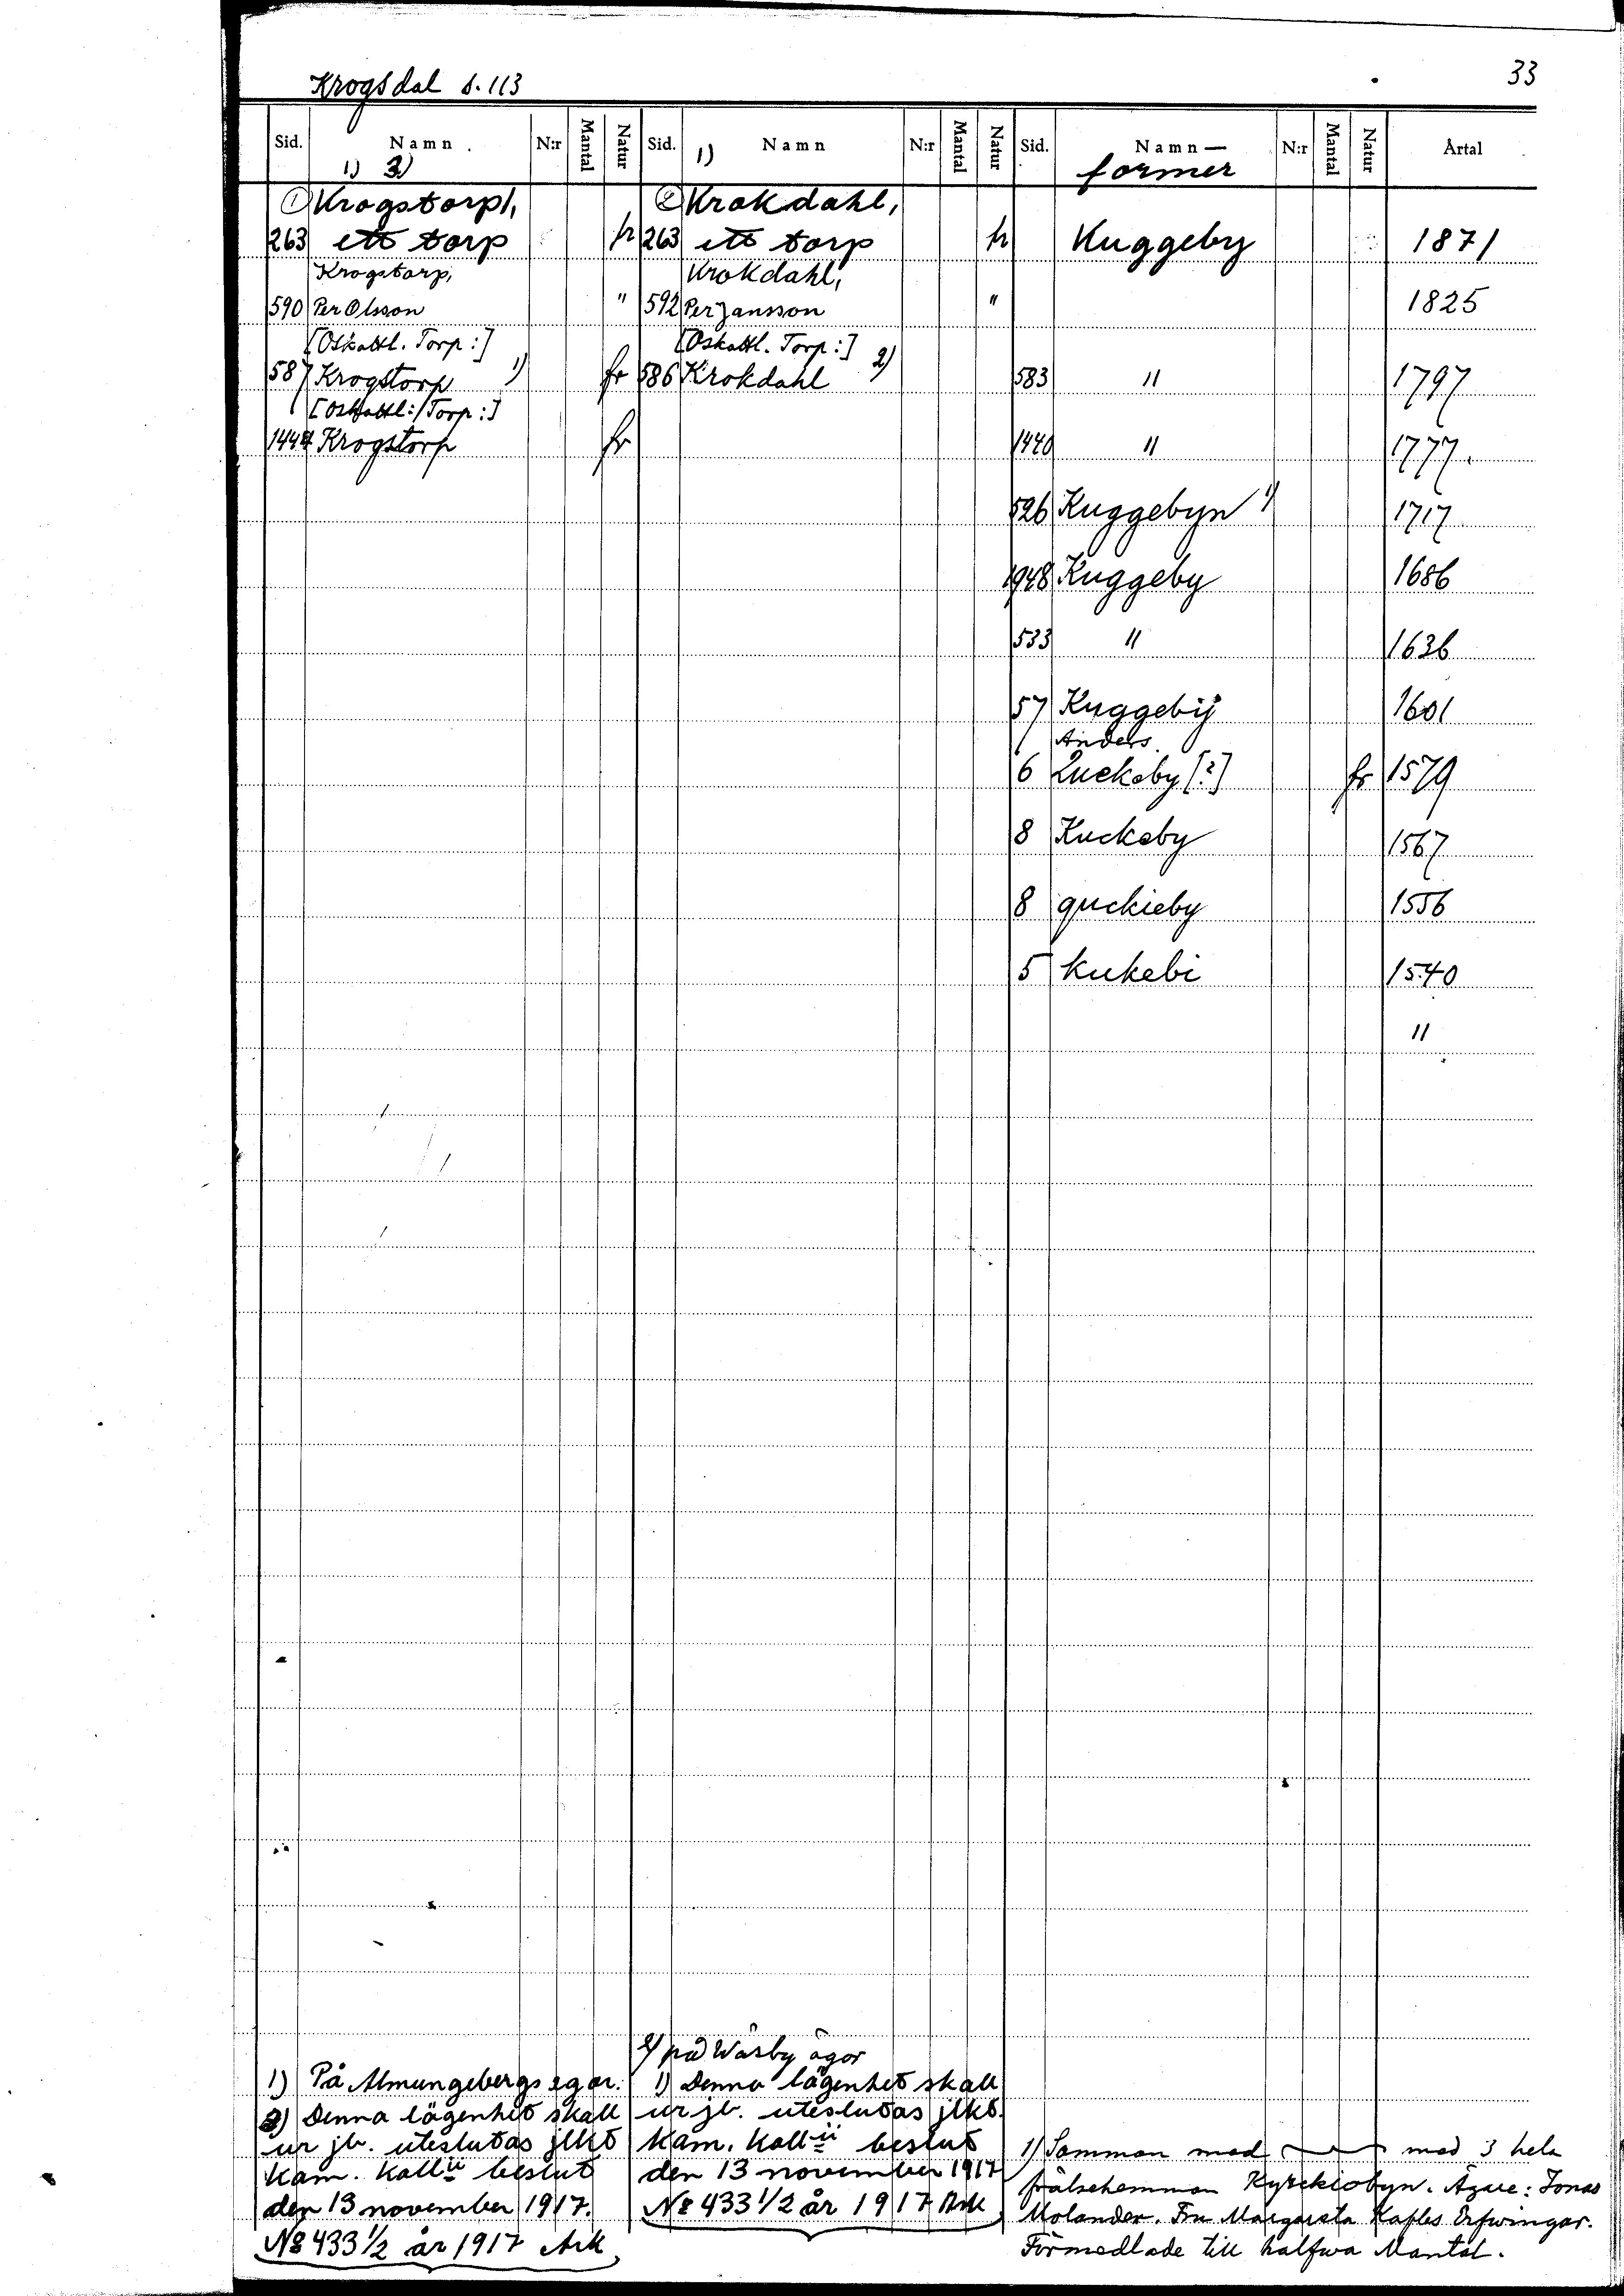 Krogsdal s. 113
33
Sid. Namn N:r Mantal Natur Sid. Namn N:r Mantal Natur Sid. Namn— N:r Mantal Natur Årtal
1) 3) 1) former
① Krogstorp, ② Krokdahl,
263 ett torp fr 263 ett torp fr Kuggeby 1871
Krogstorp, Krokdahl,
590 Per Olsson " 592 Per Jansson " 1825
[Oskattl. Torp:] [Oskattl. Torp:]
587 Krogstorp 1) fr 586 Krokdahl 2) 583 " 1797
[Oskattl: Torp:]
1444 Krogstorp fr 1440 " 1777.
526 Kuggebyn 1) 1717
1948 Kuggeby 1686
533 " 1636
57 Kuggebÿ 1601
Anders
6 Kuckeby [?] fr 1579
8 Kuckeby 1567
8 guckieby 1556
5 kukebi 1540
"
2) på Wäsby ägor
1) På Almungebergs egor. 1) Denna lägenhet skall
2) Denna lägenhet skall ur jb. uteslutas jlkt
ur jb. uteslutas jlkt Kam. Kollii beslut 1) Samman med med 3 hela
Kam. Kollii beslut den 13 november 1917 frälsehemman Kyrckiobyn. Ägare: Jonas
den 13 november 1917. No 433 1/2 år 1917 Ark Molander. Fru Margareta Kafles Erfwingar.
No 433 1/2 år 1917 Ark Förmedlade till halfwa Mantal.